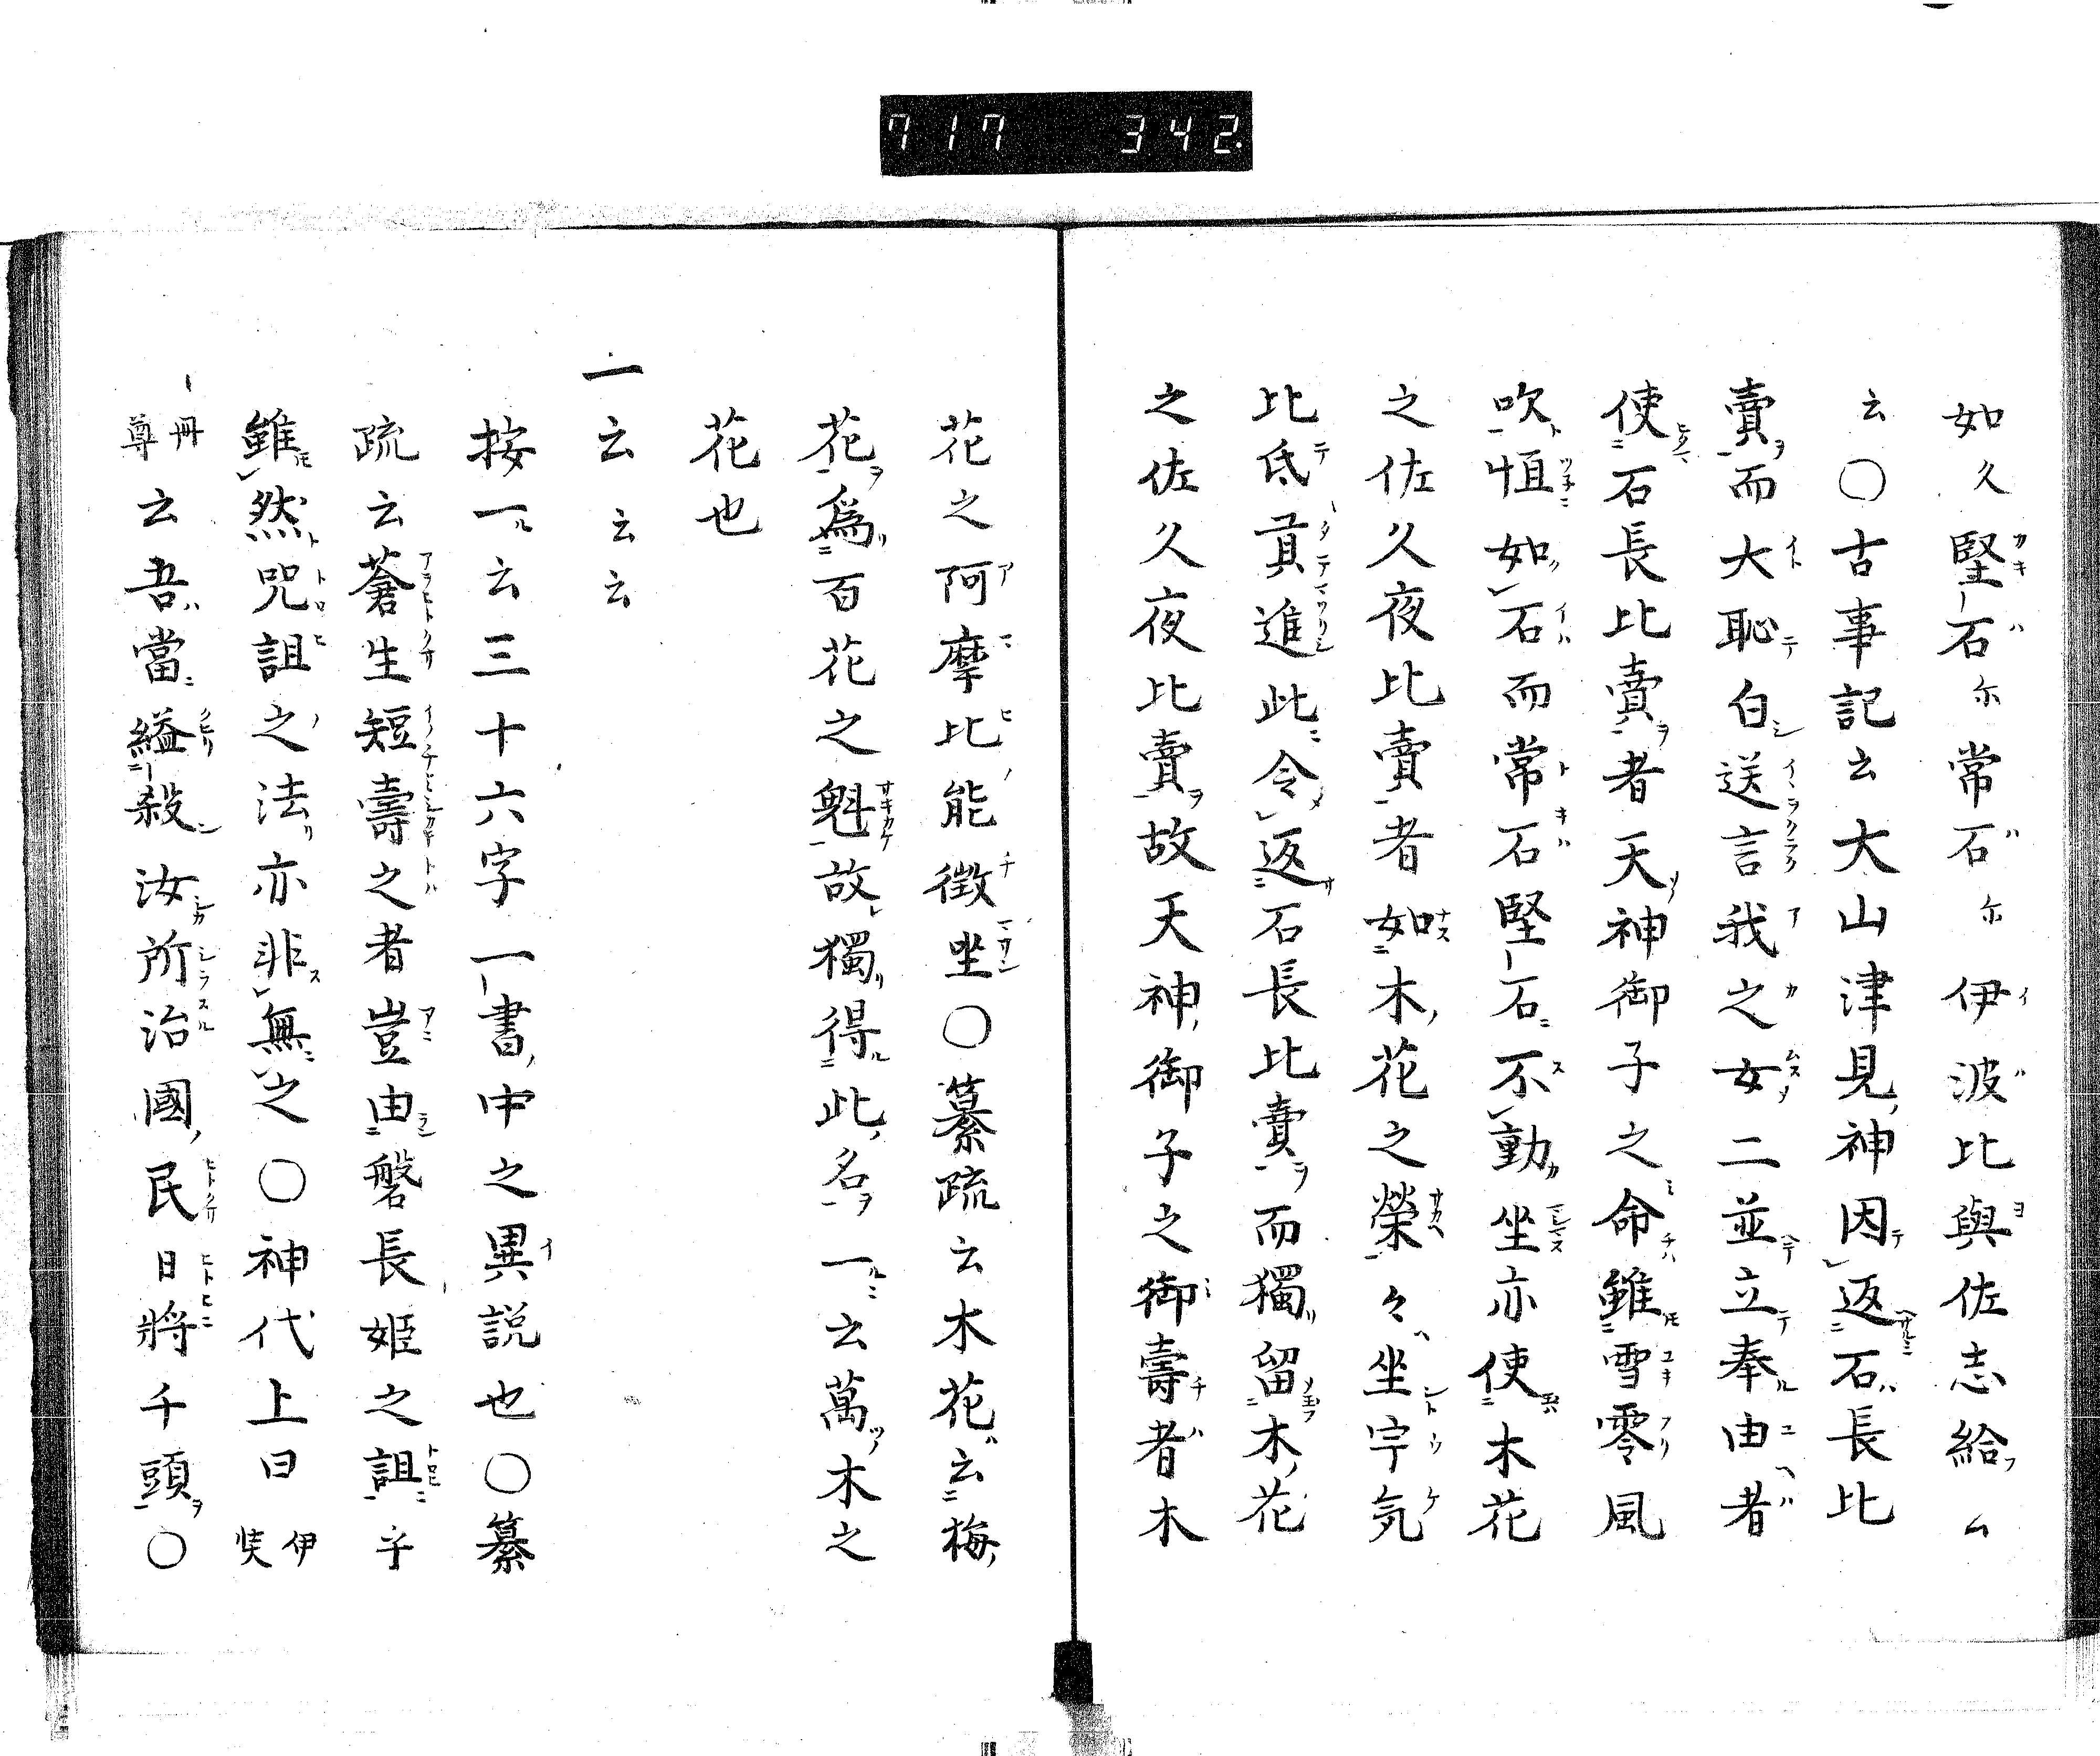 717 342.
如久堅石尓常石尓伊波比與佐志給ム
云〇古事記云大山津見神因返石長比
賣而大恥白送言我之女二並立奉由者
使石長比賣者天神御子之命雖雪零風
吹恒如石而常石堅石不動坐亦使木花
之佐久夜比賣者如木花之榮々坐宇気
比氐貢進此令返石長比賣而獨留木花
之佐久夜比賣故天神御子之御壽者木
花之阿摩比能徴坐〇纂疏云木花云梅
花爲百花之魁故獨得此名一云萬木之
花也
一云云云
按一云三十六字一書中之異説也〇纂
疏云蒼生短壽之者豈由磐長姫之詛乎
雖然咒詛之法亦非無之〇神代上曰伊弉
冊尊云吾當縊殺汝所治國民日將千頭〇